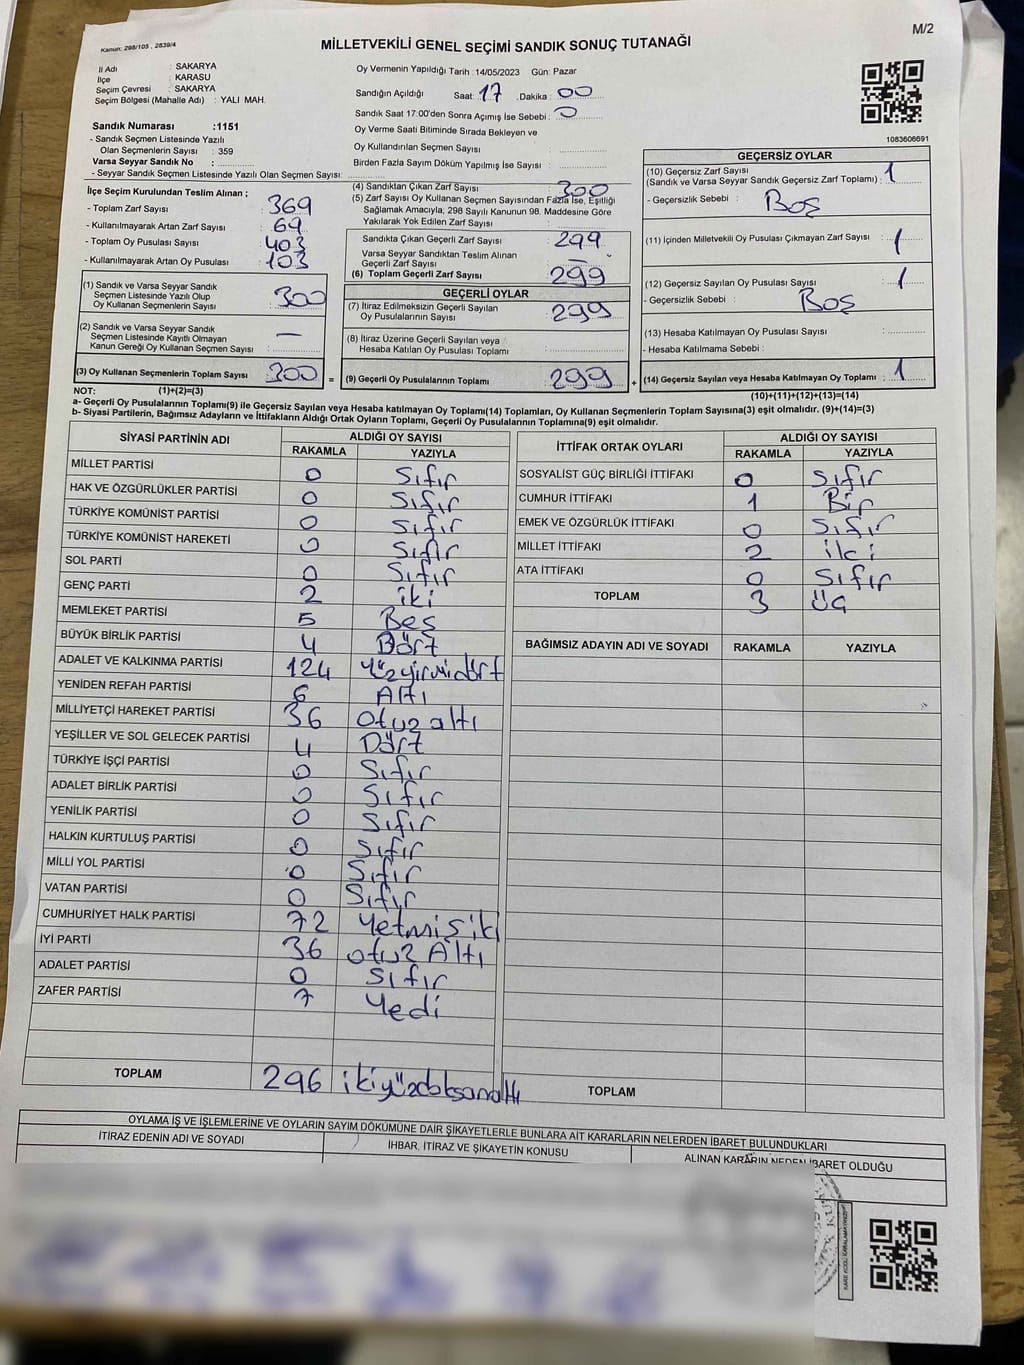 M/2
Kanun: 298/105 , 2839/4
MİLLETVEKİLİ GENEL SEÇİMİ SANDIK SONUÇ TUTANAĞI
İl Adı : SAKARYA
İlçe : KARASU
Seçim Çevresi : SAKARYA
Seçim Bölgesi (Mahalle Adı) : YALI MAH.
Sandık Numarası :1151
- Sandık Seçmen Listesinde Yazılı
Olan Seçmenlerin Sayısı : 359
Varsa Seyyar Sandık No :
- Seyyar Sandık Seçmen Listesinde Yazılı Olan Seçmen Sayısı:
Oy Vermenin Yapıldığı Tarih :14/05/2023 Gün: Pazar
Sandığın Açıldığı Saat: 17 .Dakika : 00
Sandık Saat 17:00'den Sonra Açımış İse Sebebi : 0
Oy Verme Saati Bitiminde Sırada Bekleyen ve
Oy Kullandırılan Seçmen Sayısı :
Birden Fazla Sayım Döküm Yapılmış İse Sayısı :
1083606691
İlçe Seçim Kurulundan Teslim Alınan ;
- Toplam Zarf Sayısı : 369
- Kullanılmayarak Artan Zarf Sayısı : 69
- Toplam Oy Pusulası Sayısı : 403
- Kullanılmayarak Artan Oy Pusulası : 103
(1) Sandık ve Varsa Seyyar Sandık
Seçmen Listesinde Yazılı Olup
Oy Kullanan Seçmenlerin Sayısı : 300
(2) Sandık ve Varsa Seyyar Sandık
Seçmen Listesinde Kayıtlı Olmayan
Kanun Gereği Oy Kullanan Seçmen Sayısı : —
(3) Oy Kullanan Seçmenlerin Toplam Sayısı 300 =
(4) Sandıktan Çıkan Zarf Sayısı : 300
(5) Zarf Sayısı Oy Kullanan Seçmen Sayısından Fazla İse, Eşitliği
Sağlamak Amacıyla; 298 Sayılı Kanunun 98. Maddesine Göre
Yakılarak Yok Edilen Zarf Sayısı :
Sandıkta Çıkan Geçerli Zarf Sayısı : 299
Varsa Seyyar Sandıktan Teslim Alınan
Geçerli Zarf Sayısı : —
(6) Toplam Geçerli Zarf Sayısı : 299
GEÇERLİ OYLAR
(7) İtiraz Edilmeksizin Geçerli Sayılan
Oy Pusulalarının Sayısı : 299
(8) İtiraz Üzerine Geçerli Sayılan veya
Hesaba Katılan Oy Pusulası Toplamı :
(9) Geçerli Oy Pusulalarının Toplamı : 299 +
GEÇERSİZ OYLAR
(10) Geçersiz Zarf Sayısı
(Sandık ve Varsa Seyyar Sandık Geçersiz Zarf Toplamı) : 1
- Geçersizlik Sebebi : Boş
(11) İçinden Milletvekili Oy Pusulası Çıkmayan Zarf Sayısı : 1
(12) Geçersiz Sayılan Oy Pusulası Sayısı : 1
- Geçersizlik Sebebi : Boş
(13) Hesaba Katılmayan Oy Pusulası Sayısı :
- Hesaba Katılmama Sebebi :
(14) Geçersiz Sayılan veya Hesaba Katılmayan Oy Toplamı : 1
NOT: (1)+(2)=(3)
(10)+(11)+(12)+(13)=(14)
a- Geçerli Oy Pusulalarının Toplamı(9) ile Geçersiz Sayılan veya Hesaba katılmayan Oy Toplamı(14) Toplamları, Oy Kullanan Seçmenlerin Toplam Sayısına(3) eşit olmalıdır. (9)+(14)=(3)
b- Siyasi Partilerin, Bağımsız Adayların ve İttifakların Aldığı Ortak Oyların Toplamı, Geçerli Oy Pusulalarının Toplamına(9) eşit olmalıdır.
SİYASİ PARTİNİN ADI ALDIĞI OY SAYISI
RAKAMLA YAZIYLA
MİLLET PARTİSİ 0 Sıfır
HAK VE ÖZGÜRLÜKLER PARTİSİ 0 Sıfır
TÜRKİYE KOMÜNİST PARTİSİ 0 Sıfır
TÜRKİYE KOMÜNİST HAREKETİ 0 Sıfır
SOL PARTİ 0 Sıfır
GENÇ PARTİ 2 iki
MEMLEKET PARTİSİ 5 Beş
BÜYÜK BİRLİK PARTİSİ 4 Dört
ADALET VE KALKINMA PARTİSİ 124 Yüzyirmidört
YENİDEN REFAH PARTİSİ 6 Altı
MİLLİYETÇİ HAREKET PARTİSİ 36 otuz altı
YEŞİLLER VE SOL GELECEK PARTİSİ 4 Dört
TÜRKİYE İŞÇİ PARTİSİ 0 Sıfır
ADALET BİRLİK PARTİSİ 0 Sıfır
YENİLİK PARTİSİ 0 Sıfır
HALKIN KURTULUŞ PARTİSİ 0 Sıfır
MİLLİ YOL PARTİSİ 0 Sıfır
VATAN PARTİSİ 0 Sıfır
CUMHURİYET HALK PARTİSİ 72 Yetmişiki
İYİ PARTİ 36 otuz Altı
ADALET PARTİSİ 0 Sıfır
ZAFER PARTİSİ 7 Yedi
TOPLAM 296 ikiyüzdoksanaltı
İTTİFAK ORTAK OYLARI ALDIĞI OY SAYISI
RAKAMLA YAZIYLA
SOSYALİST GÜÇ BİRLİĞİ İTTİFAKI 0 Sıfır
CUMHUR İTTİFAKI 1 Bir
EMEK VE ÖZGÜRLÜK İTTİFAKI 0 Sıfır
MİLLET İTTİFAKI 2 iki
ATA İTTİFAKI 0 Sıfır
TOPLAM 3 üç
BAĞIMSIZ ADAYIN ADI VE SOYADI RAKAMLA YAZIYLA
TOPLAM
OYLAMA İŞ VE İŞLEMLERİNE VE OYLARIN SAYIM DÖKÜMÜNE DAİR ŞİKAYETLERLE BUNLARA AİT KARARLARIN NELERDEN İBARET BULUNDUKLARI
İTİRAZ EDENİN ADI VE SOYADI İHBAR, İTİRAZ VE ŞİKAYETİN KONUSU ALINAN KARARIN NEDEN İBARET OLDUĞU